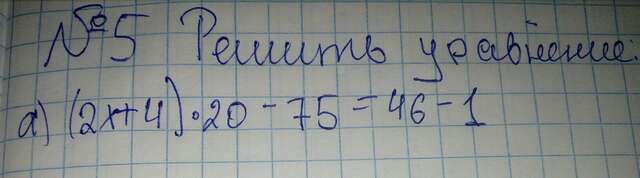 №5 Решить уравнение.
а) (2x+4)·20-75=46-1